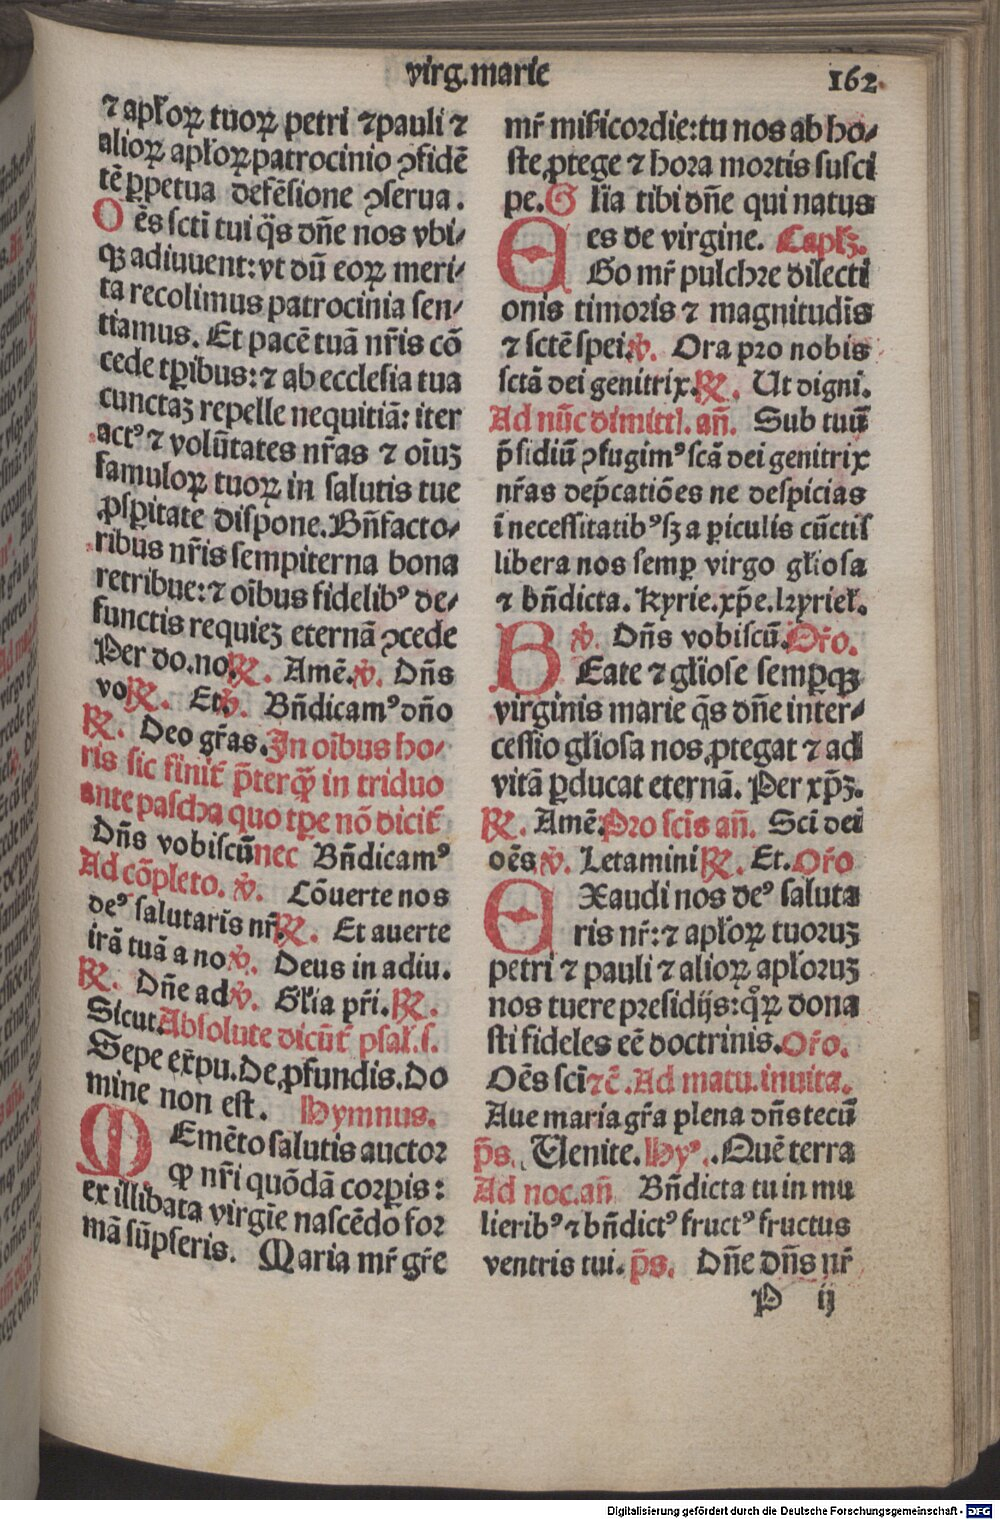 virg. marie
162
⁊ apłoꝝ tuoꝝ petri ⁊ pauli ⁊
alioꝝ apłoꝝ patrocinio ꝯfidē
tē ꝑpetua defēsione ꝯserua.
Oēs scti tui q̄s dn̄e nos vbi/
qꝫ adiuuent: vt dū eoꝝ meri/
ta recolimus patrocinia sen/
tiamus. Et pacē tuā nr̄is cō
cede tꝑibus: ⁊ ab ecclesia tua
cunctaꝫ repelle nequitiā: iter
actꝰ ⁊ volūtates nr̄as ⁊ oīuꝫ
famuloꝝ tuoꝝ in salutis tue
ꝓsꝑitate dispone. Bn̄facto/
ribus nr̄is sempiterna bona
retribue: ⁊ oībus fidelibꝰ de/
functis requieꝫ eternā ꝯcede
Per do. no. ℟. Amē. ℣. Dn̄s
vo ℟. Et ℣. Bn̄dicamꝰ dn̄o
℟. Deo gr̄as. In oībus ho/
ris sic finit̄ p̄terqꝙ in triduo
ante pascha quo tꝑe nō dicit̄
Dn̄s vobiscū nec Bn̄dicamꝰ
Ad cōpleto. ℣. Cōuerte nos
deꝰ salutaris nr̄ ℟. Et auerte
irā tuā a no ℣. Deus in adiu.
℟. Dn̄e ad ℣. Gl̄ia pr̄i. ℟.
Sicut. Absolute dicūt̄ psal. s.
Sepe ex̄pu. De ꝓfundis. Do
mine non est. Hymnus.
Memēto salutis auctor
ꝙ nr̄i quōdā corꝑis:
ex illibata virgīe nascēdo for
mā sūpseris. Maria mr̄ gr̄e
mr̄ miſicordie: tu nos ab ho/
ste ꝓtege ⁊ hora mortis susci
pe. Gl̄ia tibi dn̄e qui natus
es de virgine. Capłꝫ.
Ego mr̄ pulchre dilecti
onis timoris ⁊ magnitudīs
⁊ sctē spei. ℣. Ora pro nobis
sctā dei genitrix. ℟. Ut digni.
Ad nūc dimitti. an̄. Sub tuū
p̄sidiū ꝯfugimꝰ scā dei genitrix
nr̄as dep̄catiōes ne despicias
ī necessitatibꝰ sꝫ a ꝑiculis cūctis
libera nos semꝑ virgo gl̄iosa
⁊ bn̄dicta. Kyrie. xp̄e. kyrieł.
℣. Dn̄s vobiscū. Or̄o.
Beate ⁊ gl̄iose semꝑqꝫ
virginis marie q̄s dn̄e inter/
cessio gl̄iosa nos ꝓtegat ⁊ ad
vitā ꝑducat eternā. Per xp̄ꝫ.
℟. Amē. Pro scīs an̄. Scī dei
oēs ℣. Letamini ℟. Et. Or̄o
Exaudi nos deꝰ saluta
ris nr̄: ⁊ apłoꝝ tuoruꝫ
petri ⁊ pauli ⁊ alioꝝ apłoruꝫ
nos tuere presidijs: qͦꝝ dona
sti fideles eē doctrinis. Or̄o.
Oēs scī ⁊c̄. Ad matu. inuita.
Aue maria gr̄a plena dn̄s tecū
p̄s. Uenite. Hyꝰ. Quē terra
Ad noc. an̄ Bn̄dicta tu in mu
lieribꝰ ⁊ bn̄dictꝰ fructꝰ fructus
ventris tui. p̄s. Dn̄e dn̄s nr̄
P ij
Digitalisierung gefördert durch die Deutsche Forschungsgemeinschaft - DFG